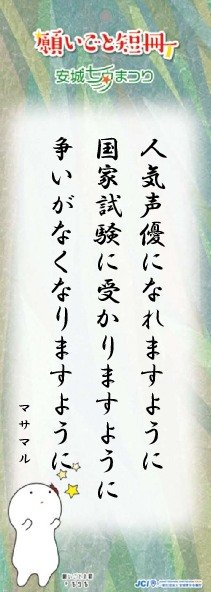 願いごと短冊
安城七夕まつり
人気声優になれますように
国家試験に受かりますように
争いがなくなりますように
マサマル
JCI